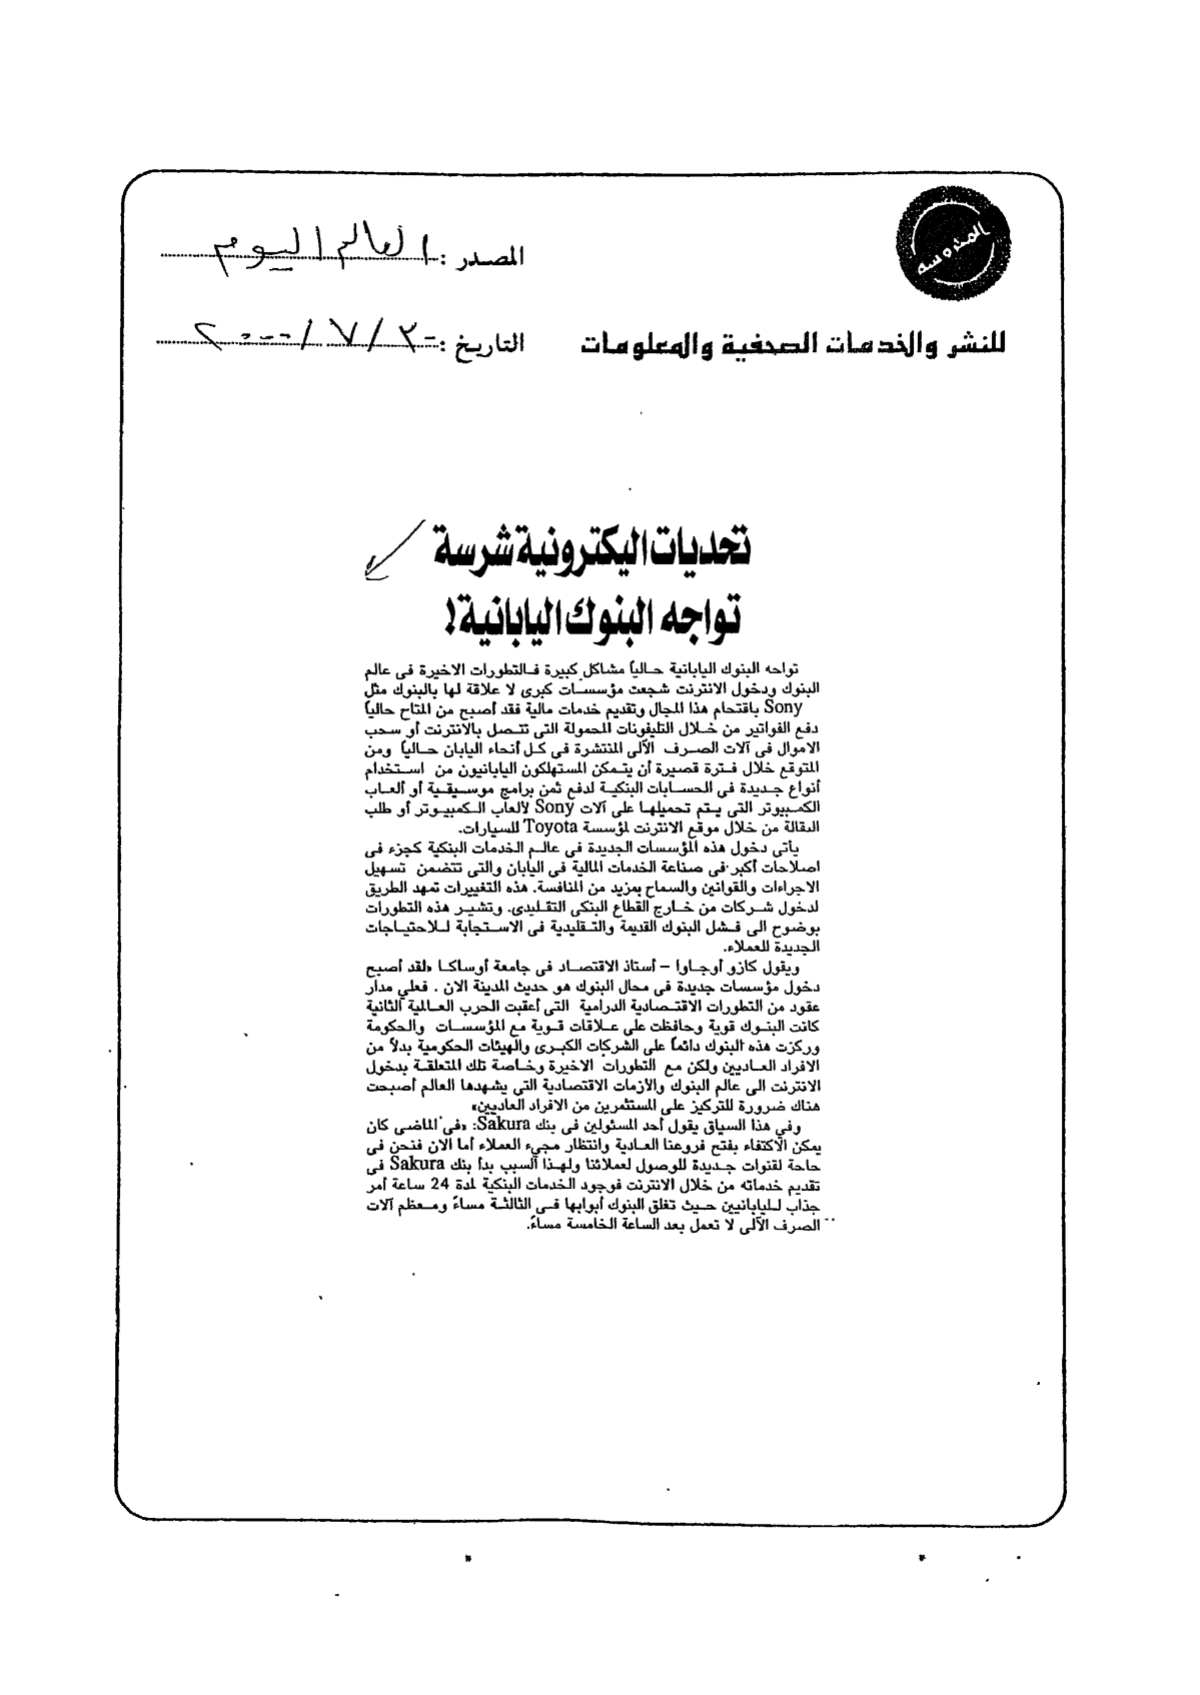 المحروسة
المصدر : العالم اليوم
للنشر والخدمات الصحفية والمعلومات
التاريخ : ٣٠ / ٧ / ٢٠٠٠
تحديات اليكترونية شرسة
تواجه البنوك اليابانية!
تواجه البنوك اليابانية حالياً مشاكل كبيرة فالتطورات الاخيرة فى عالم
البنوك ودخول الانترنت شجعت مؤسسات كبرى لا علاقة لها بالبنوك مثل
Sony باقتحام هذا المجال وتقديم خدمات مالية فقد أصبح من المتاح حالياً
دفع الفواتير من خلال التليفونات المحمولة التى تتصل بالانترنت أو سحب
الاموال فى آلات الصرف الآلى المنتشرة فى كل أنحاء اليابان حالياً ومن
المتوقع خلال فترة قصيرة أن يتمكن المستهلكون اليابانيون من استخدام
أنواع جديدة فى الحسابات البنكية لدفع ثمن برامج موسيقية أو ألعاب
الكمبيوتر التى يتم تحميلها على آلات Sony لألعاب الكمبيوتر أو طلب
البقالة من خلال موقع الانترنت لمؤسسة Toyota للسيارات.
يأتى دخول هذه المؤسسات الجديدة فى عالم الخدمات البنكية كجزء فى
اصلاحات أكبر فى صناعة الخدمات المالية فى اليابان والتى تتضمن تسهيل
الاجراءات والقوانين والسماح بمزيد من المنافسة. هذه التغييرات تمهد الطريق
لدخول شركات من خارج القطاع البنكى التقليدى. وتشير هذه التطورات
بوضوح الى فشل البنوك القديمة والتقليدية فى الاستجابة للاحتياجات
الجديدة للعملاء.
ويقول كازو أوجاوا – أستاذ الاقتصاد فى جامعة أوساكا «لقد أصبح
دخول مؤسسات جديدة فى مجال البنوك هو حديث المدينة الان . فعلي مدار
عقود من التطورات الاقتصادية الدرامية التى أعقبت الحرب العالمية الثانية
كانت البنوك قوية وحافظت على علاقات قوية مع المؤسسات والحكومة
وركزت هذه البنوك دائماً على الشركات الكبرى والهيئات الحكومية بدلاً من
الافراد العاديين ولكن مع التطورات الاخيرة وخاصة تلك المتعلقة بدخول
الانترنت الى عالم البنوك والأزمات الاقتصادية التى يشهدها العالم أصبحت
هناك ضرورة للتركيز على المستثمرين من الافراد العاديين»
وفي هذا السياق يقول أحد المسئولين فى بنك Sakura: «فى الماضى كان
يمكن الاكتفاء بفتح فروعنا العادية وانتظار مجيء العملاء أما الان فنحن فى
حاجة لقنوات جديدة للوصول لعملائنا ولهذا السبب بدأ بنك Sakura فى
تقديم خدماته من خلال الانترنت فوجود الخدمات البنكية لمدة 24 ساعة أمر
جذاب لليابانيين حيث تغلق البنوك أبوابها فى الثالثة مساءً ومعظم آلات
الصرف الآلى لا تعمل بعد الساعة الخامسة مساءً.